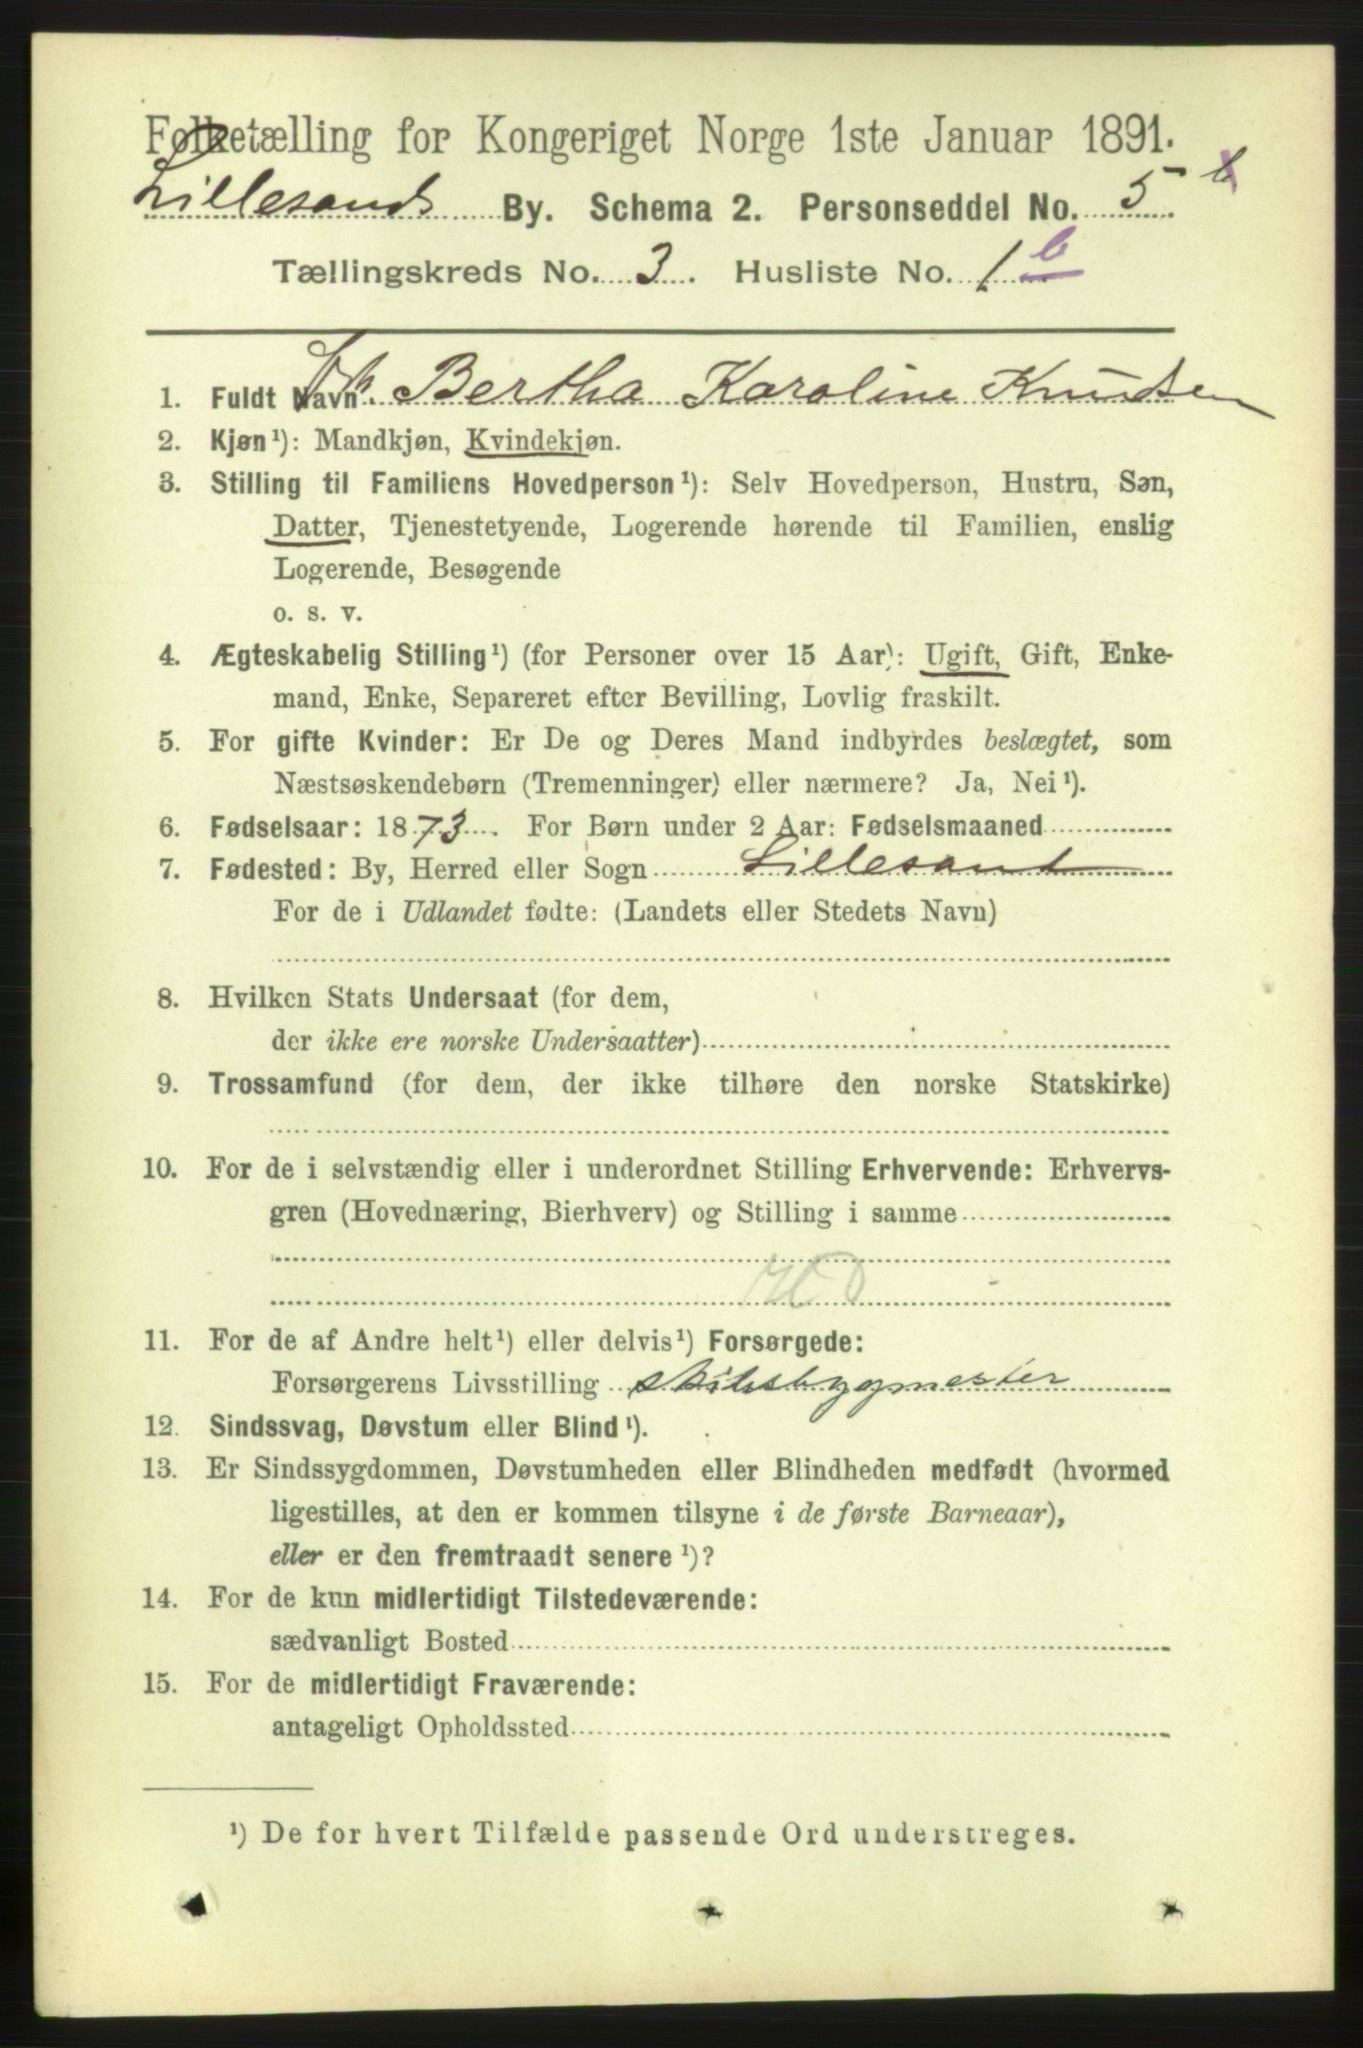 Folketælling for Kongeriget Norge 1ste Januar 1891.
Lillesands By. Schema 2. Personseddel No. 5
Tællingskreds No. 3. Husliste No. 1 b
1. Fuldt Navn Frk. Bertha Karoline Knudsen
2. Kjøn¹): Mandkjøn, Kvindekjøn.
3. Stilling til Familiens Hovedperson¹): Selv Hovedperson, Hustru, Søn,
Datter, Tjenestetyende, Logerende hørende til Familien, enslig
Logerende, Besøgende
o. s. v.
4. Ægteskabelig Stilling¹) (for Personer over 15 Aar): Ugift, Gift, Enke-
mand, Enke, Separeret efter Bevilling, Lovlig fraskilt.
5. For gifte Kvinder: Er De og Deres Mand indbyrdes beslægtet, som
Næstsøskendebørn (Tremenninger) eller nærmere? Ja, Nei¹).
6. Fødselsaar: 1873. For Børn under 2 Aar: Fødselsmaaned
7. Fødested: By, Herred eller Sogn Lillesand
For de i Udlandet fødte: (Landets eller Stedets Navn)
8. Hvilken Stats Undersaat (for dem,
der ikke ere norske Undersaatter)
9. Trossamfund (for dem, der ikke tilhøre den norske Statskirke)
10. For de i selvstændig eller i underordnet Stilling Erhvervende: Erhvervs-
gren (Hovednæring, Bierhverv) og Stilling i samme
11. For de af Andre helt¹) eller delvis¹) Forsørgede:
Forsørgerens Livsstilling skibsbygmester
12. Sindssvag, Døvstum eller Blind¹).
13. Er Sindssygdommen, Døvstumheden eller Blindheden medfødt (hvormed
ligestilles, at den er kommen tilsyne i de første Barneaar),
eller er den fremtraadt senere¹)?
14. For de kun midlertidigt Tilstedeværende:
sædvanligt Bosted
15. For de midlertidigt Fraværende:
antageligt Opholdssted
¹) De for hvert Tilfælde passende Ord understreges.